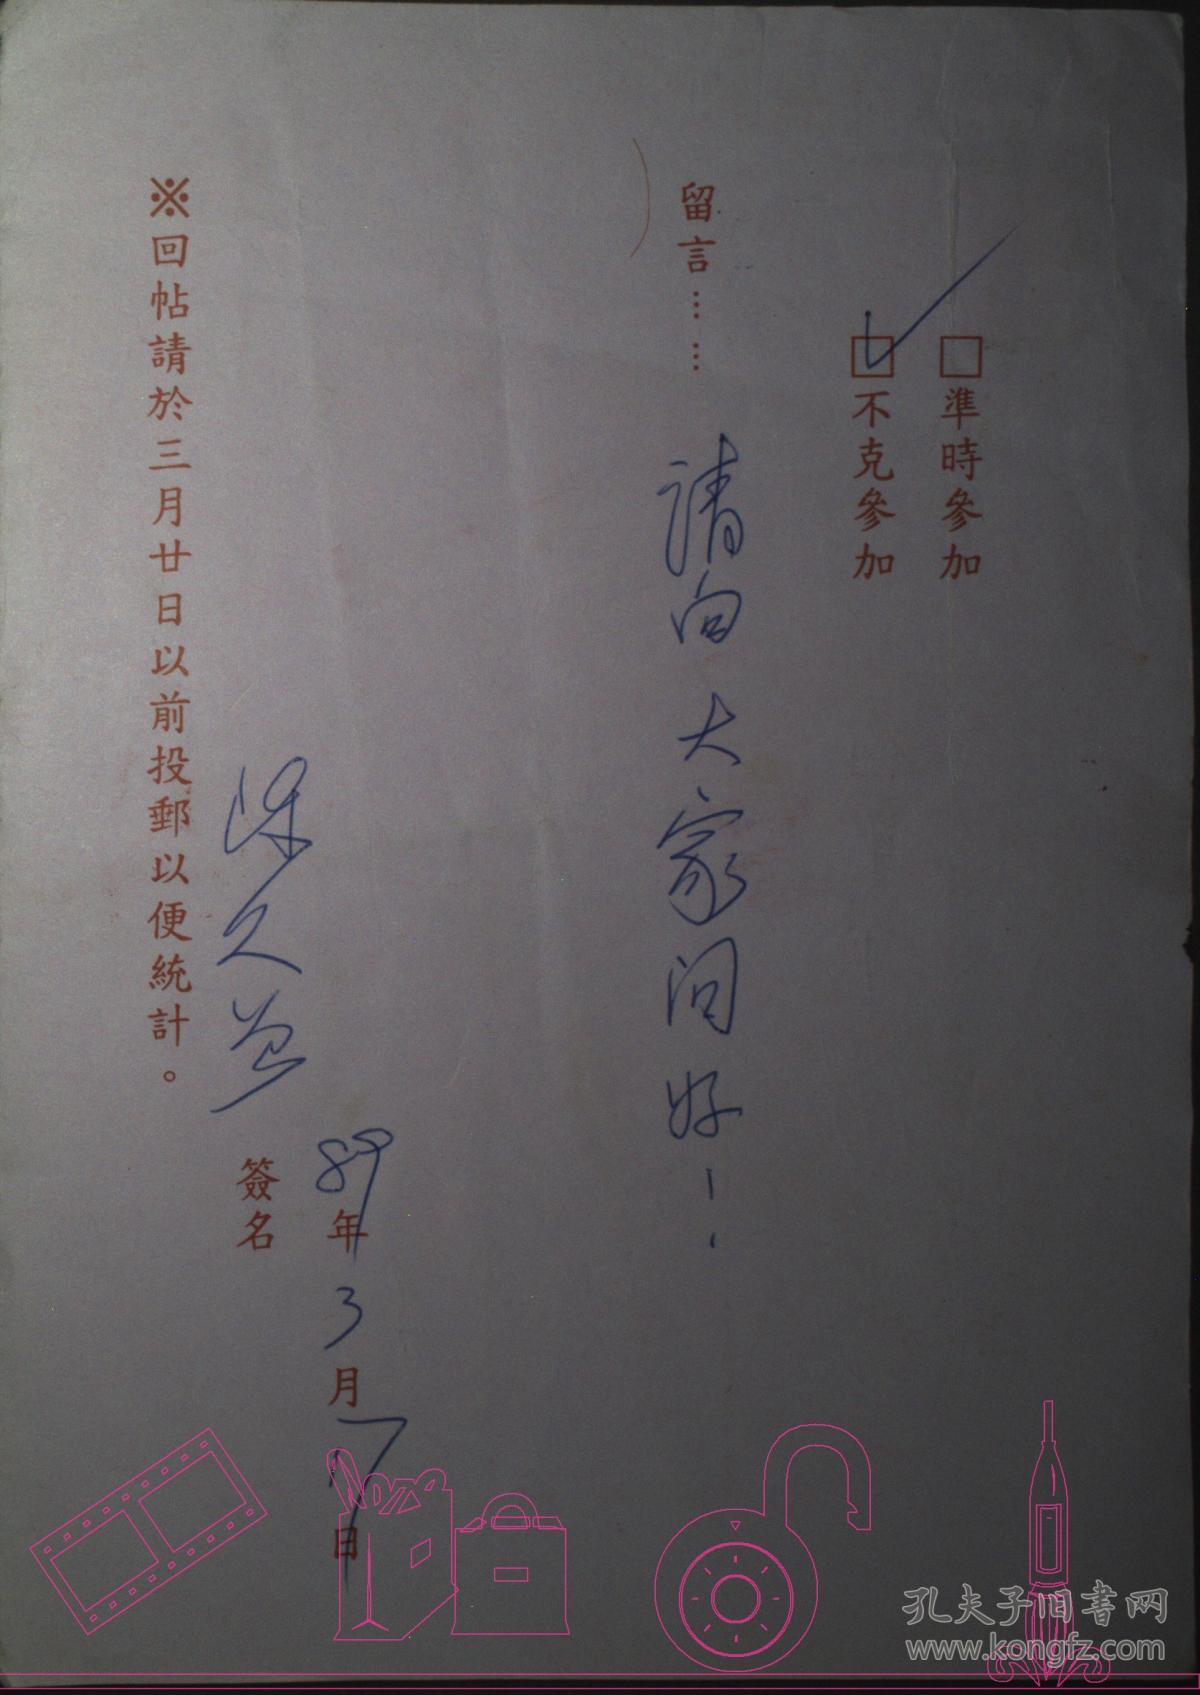 □準時參加
□不克參加
留言……請向大家問好！
89年3月17日
簽名
※回帖請於三月廿日以前投郵以便統計。
孔夫子旧书网
www.kongfz.com